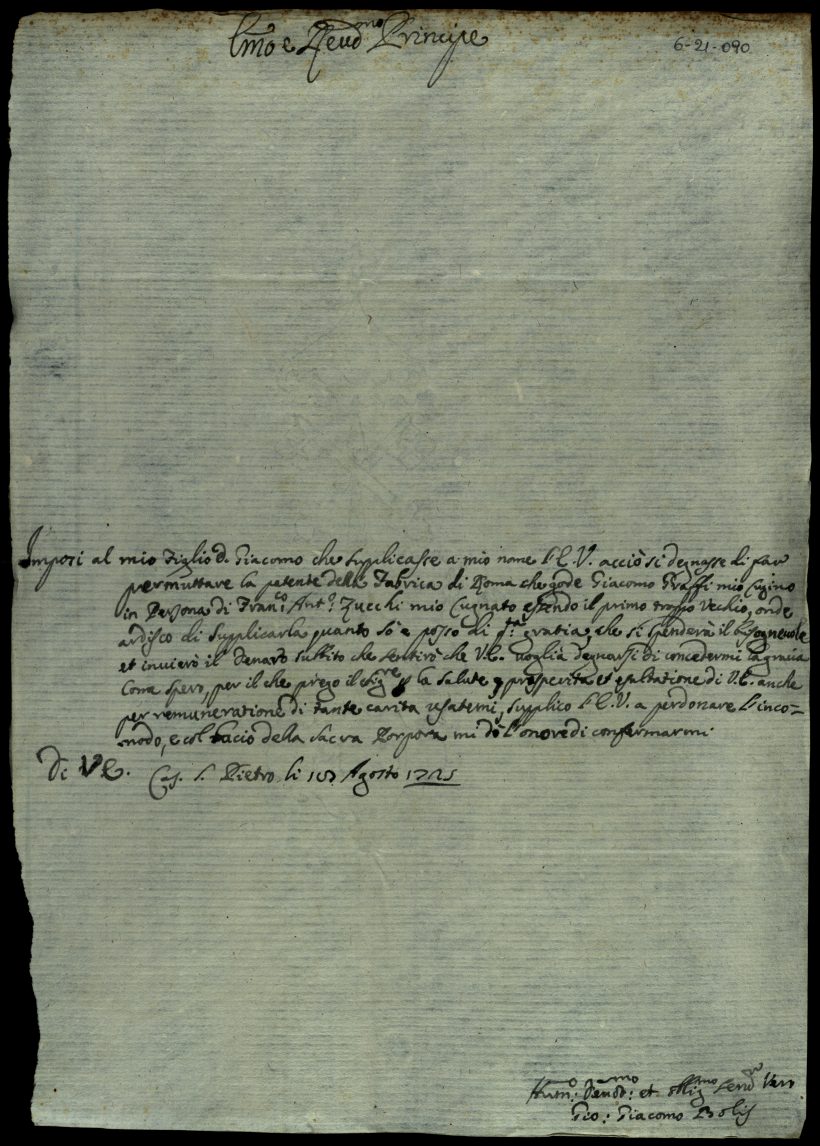 Emo e Reud.mo Principe
6-21-090
Imposi al mio Figlio D. Giacomo che supplicasse a mio nome l'E.V. acciò si degnasse di far
permuttare la patente della Fabrica di Roma che gode Giacomo Graffi mio Cugino
in Persona di Fran.co Ant.o Zucchi mio Cugnato essendo il primo troppo Vecchio, onde
ardisco di supplicarla quanto sò e posso di gratia, che si spenderà il bisogneuole
et invierò il denaro subbito che sentirò che V.E. voglia degnarsi di concedermi la gratia
Come spero, per il che prego il Sig.re la salute prosperità et esaltatione di V.E. anche
per remuneratione di tante carità usatemi, supplico l'E.V. a perdonare l'inco=
modo, e col bacio della sacra Porpora mi dò l'onore di confermarmi
Di V.E. Cas. S. Pietro li Agosto
Hum.o Deuot.mo et obblig.mo Seru.r Vero
Gio: Giacomo Bolis